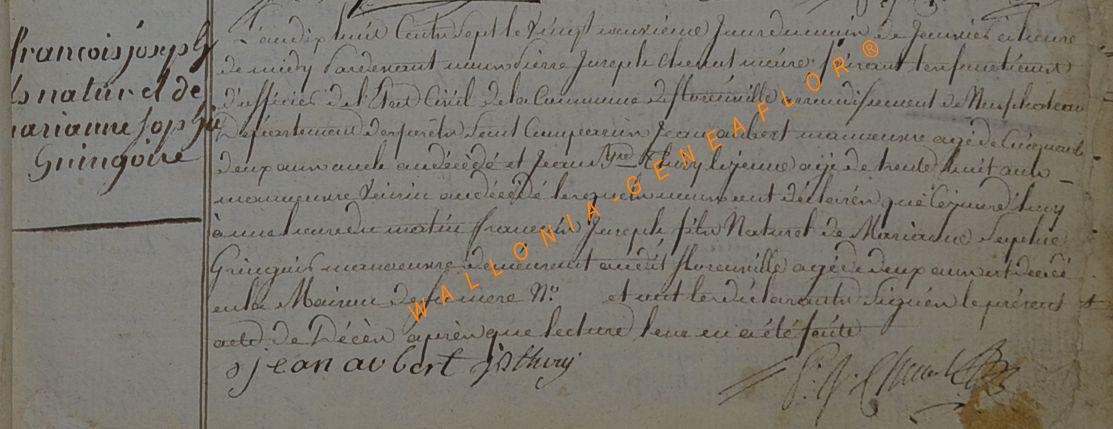 francois joseph
ls naturel de
marianne Sophie
Gringoire
L'an dix huit Cents Sept le Vingt neuvieme Jour du mois de Janvier a heure
de midy Pardevant nous Pierre Joseph maire faisant les fonctions
d'officier de l'Etat Civil de la Commune de florenville arrondissement de Neufchateau
Departement des forêts Sont Comparus Jean aubert manoeuvre agé de Cinquante
deux ans oncle au décédé et Jean Thiry le jeune agé de trente huit ans
manoeuvre Voisin au décédé lesquels nous ont déclaré que Cejourd'huy
à une heure du matin francois Joseph fils Naturel de Marianne Sophie
manoeuvre demeurant audit florenville agé de deux ans est decedé
en la Maison de sa mere No et ont les déclarants Signés le présent
acte de Décès après que lecture leur en a été faite
jean aubert Thiry
WALLONIA-GENEAFLOR®